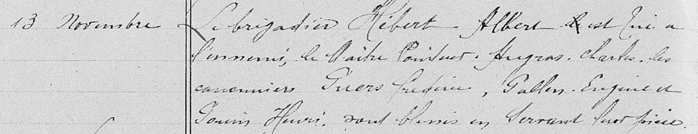 13 Novembre Le brigadier Hébert Albert est tué à
l'ennemi, le Maître Pointeur Augras Charles, les
canonniers Guers Frédéric, Gallon Eugène et
Gouin Henri, sont blessés en servant leur pièce